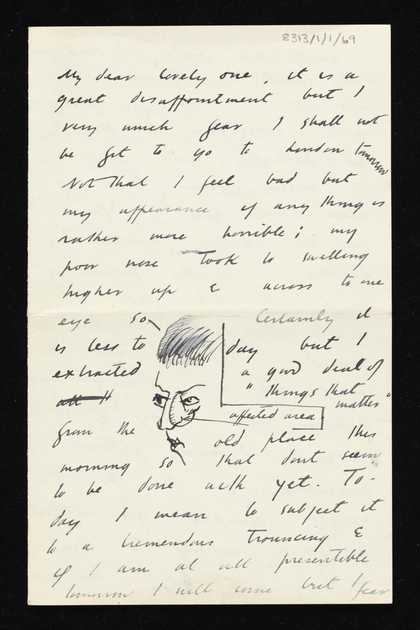 8313/1/1/69
My dear lovely one, it is a
great disappointment but I
very much fear I shall not
be fit to go to London tomorrow
Not that I feel bad but
my appearance if any thing is
rather more horrible; my
poor nose took to swelling
higher up & across to one
eye so— Certainly it
is less to day but I
extracted a good deal of
all it "things that matter"
affected area
from the old place this
morning so that dont seem
to be done with yet. To-
day I mean to subject it
to a tremendous trouncing &
if I am at all presentible
tomorrow I will come but I fear